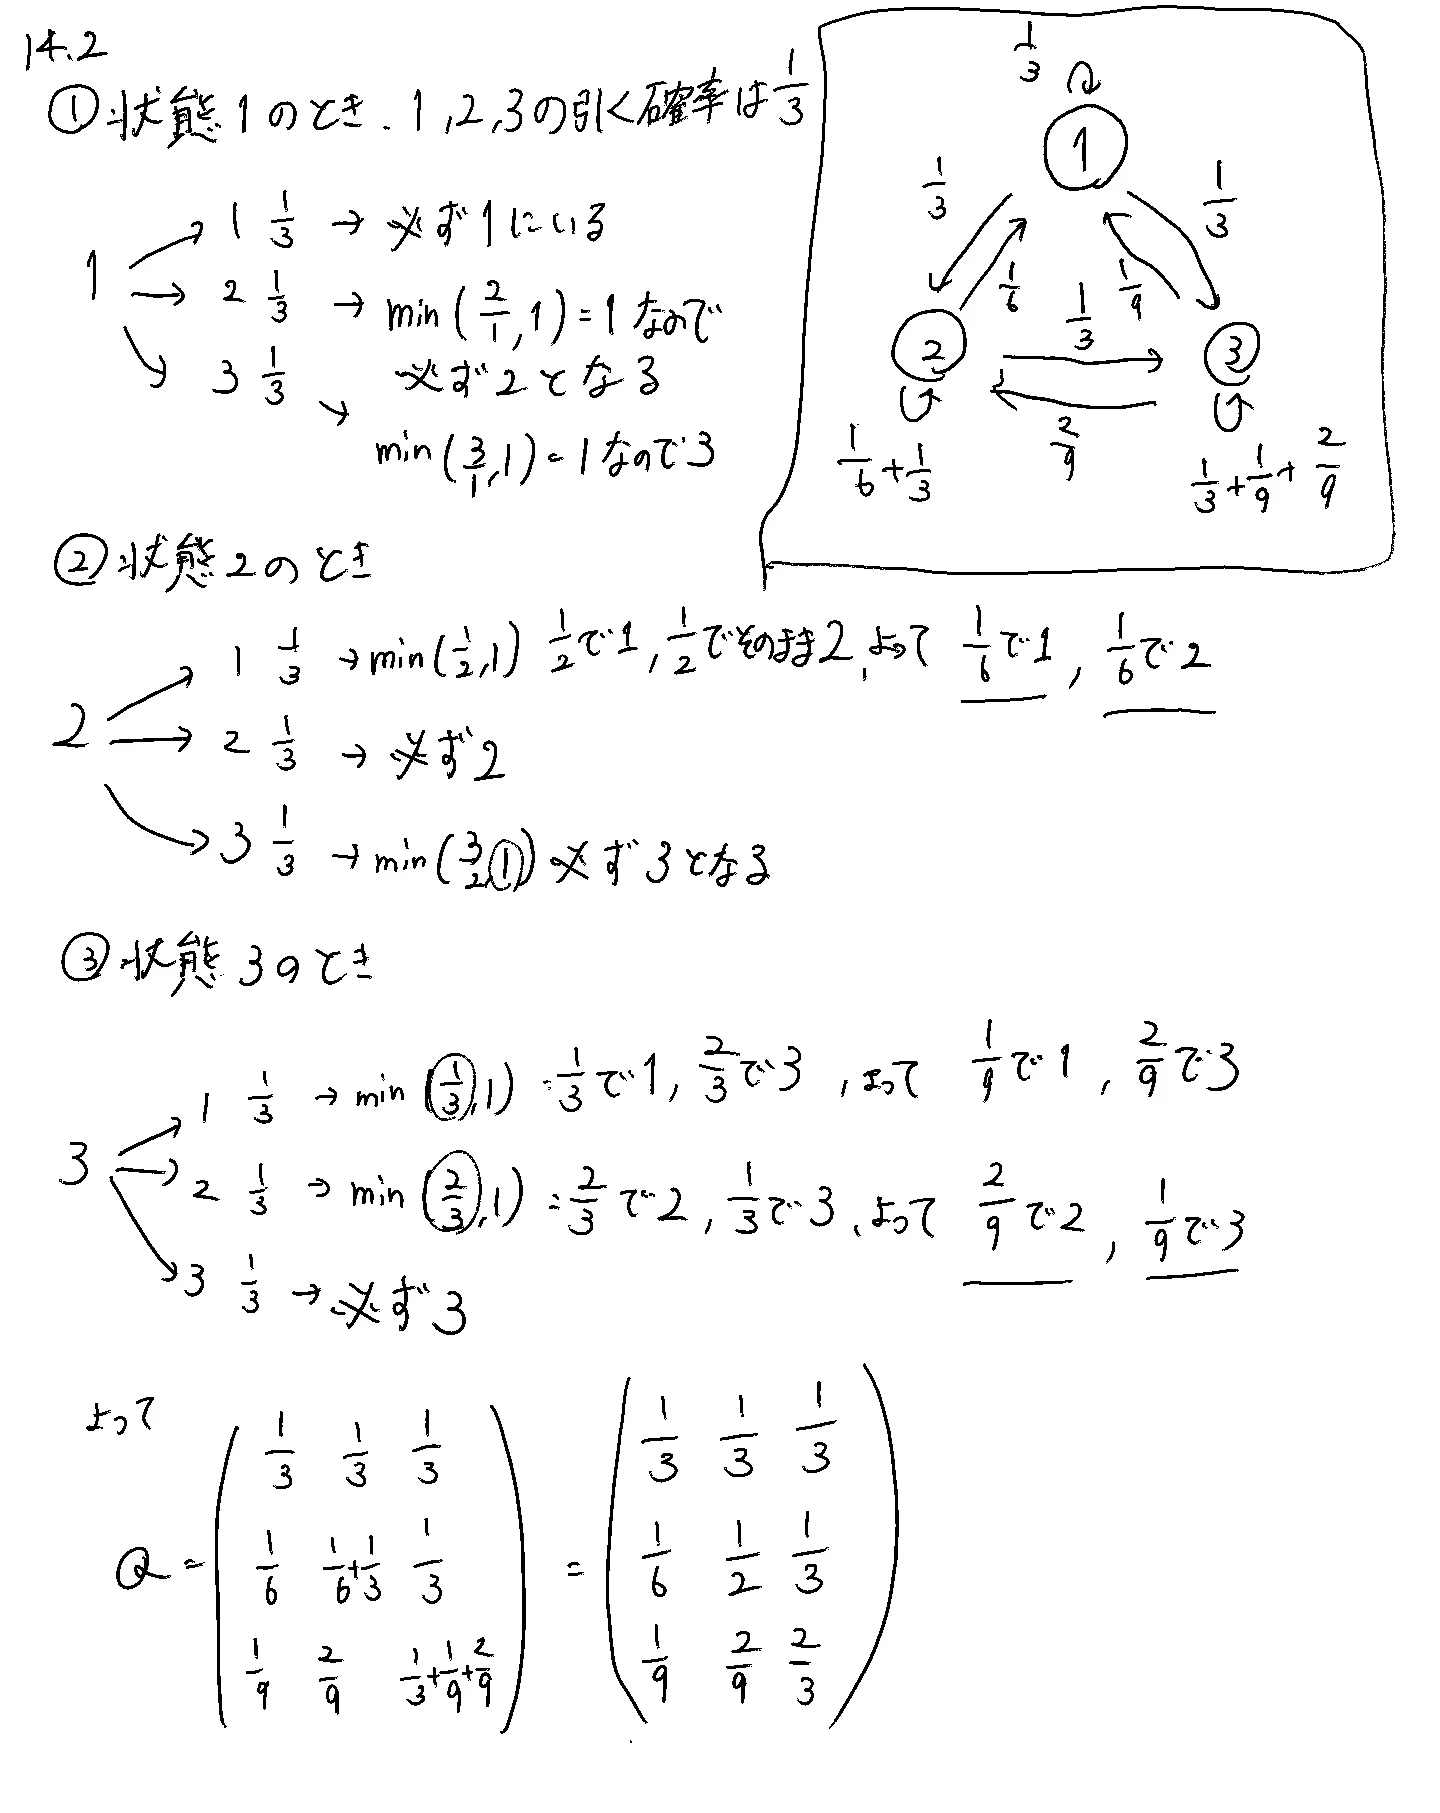 14.2
①状態1のとき. 1,2,3の引く確率は1/3
1
1 1/3 → 必ず1にいる
2 1/3 → min(2/1,1)=1なので
必ず2となる
3 1/3 → min(3/1,1)=1なので3
1/3
1
1/3 1/3
1/6 1/9
1/3
2 3
2/9
1/6+1/3
1/3+1/9+2/9
②状態2のとき
2
1 1/3 → min(1/2,1) 1/2で1, 1/2でそのまま2, よって 1/6で1, 1/6で2
2 1/3 → 必ず2
3 1/3 → min(3/2,1) 必ず3となる
③状態3のとき
3
1 1/3 → min(1/3,1)=1/3で1, 2/3で3, よって 1/9で1, 2/9で3
2 1/3 → min(2/3,1)=2/3で2, 1/3で3, よって 2/9で2, 1/9で3
3 1/3 → 必ず3
よって
Q = ( 1/3 1/3 1/3 ) = ( 1/3 1/3 1/3 )
( 1/6 1/6+1/3 1/3 ) ( 1/6 1/2 1/3 )
( 1/9 2/9 1/3+1/9+2/9 ) ( 1/9 2/9 2/3 )